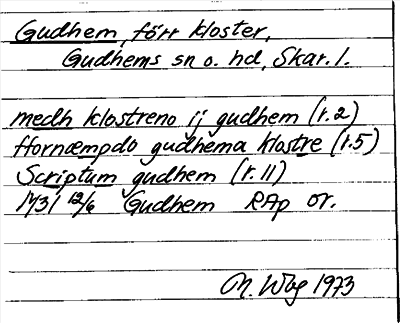 Gudhem, förr kloster,
Gudhems sn o. hd, Skar. l.
medh klostreno ij gudhem (r.2)
Hornæmpdo gudhema klostre (r.5)
Scriptum gudhem (r.11)
1431 12/6 Gudhem RAp or.
1973